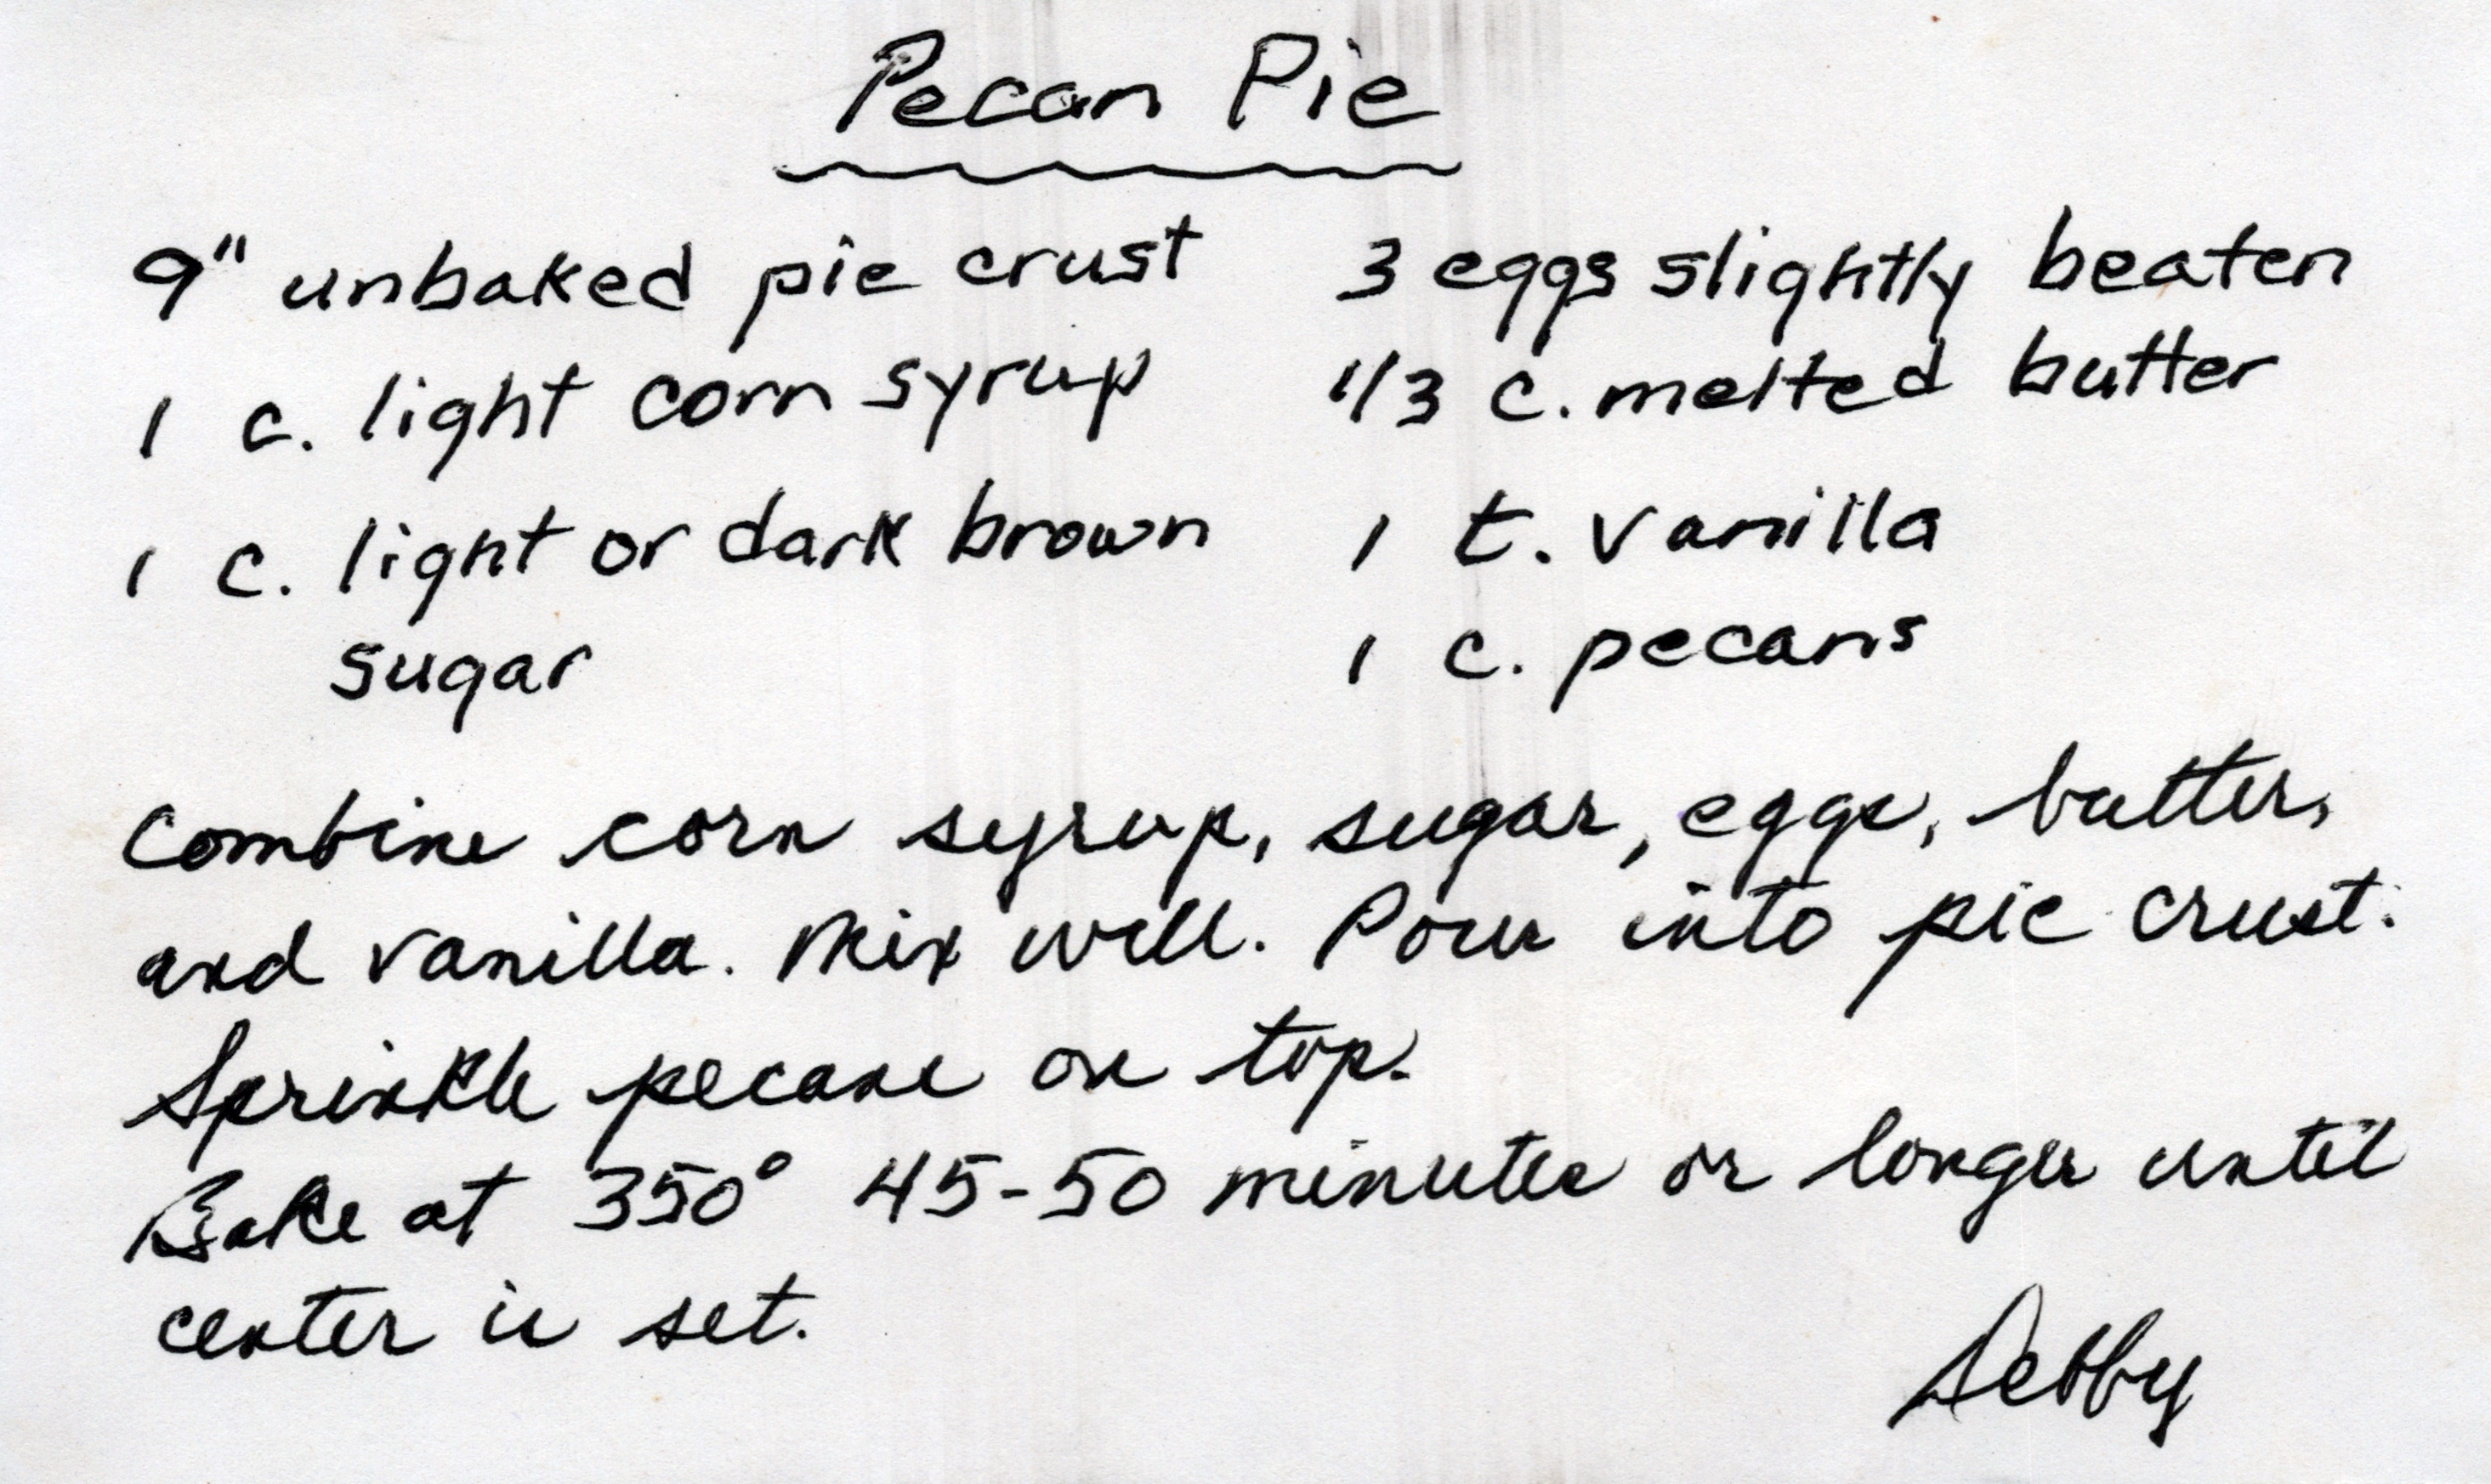 Pecan Pie
9" unbaked pie crust
1 c. light corn syrup
1 c. light or dark brown
sugar
3 eggs slightly beaten
1/3 c. melted butter
1 t. vanilla
1 c. pecans
Combine corn syrup, sugar, eggs, butter,
and vanilla. Mix well. Pour into pie crust.
Sprinkle pecans on top.
Bake at 350° 45-50 minutes or longer until
center is set.
Debby